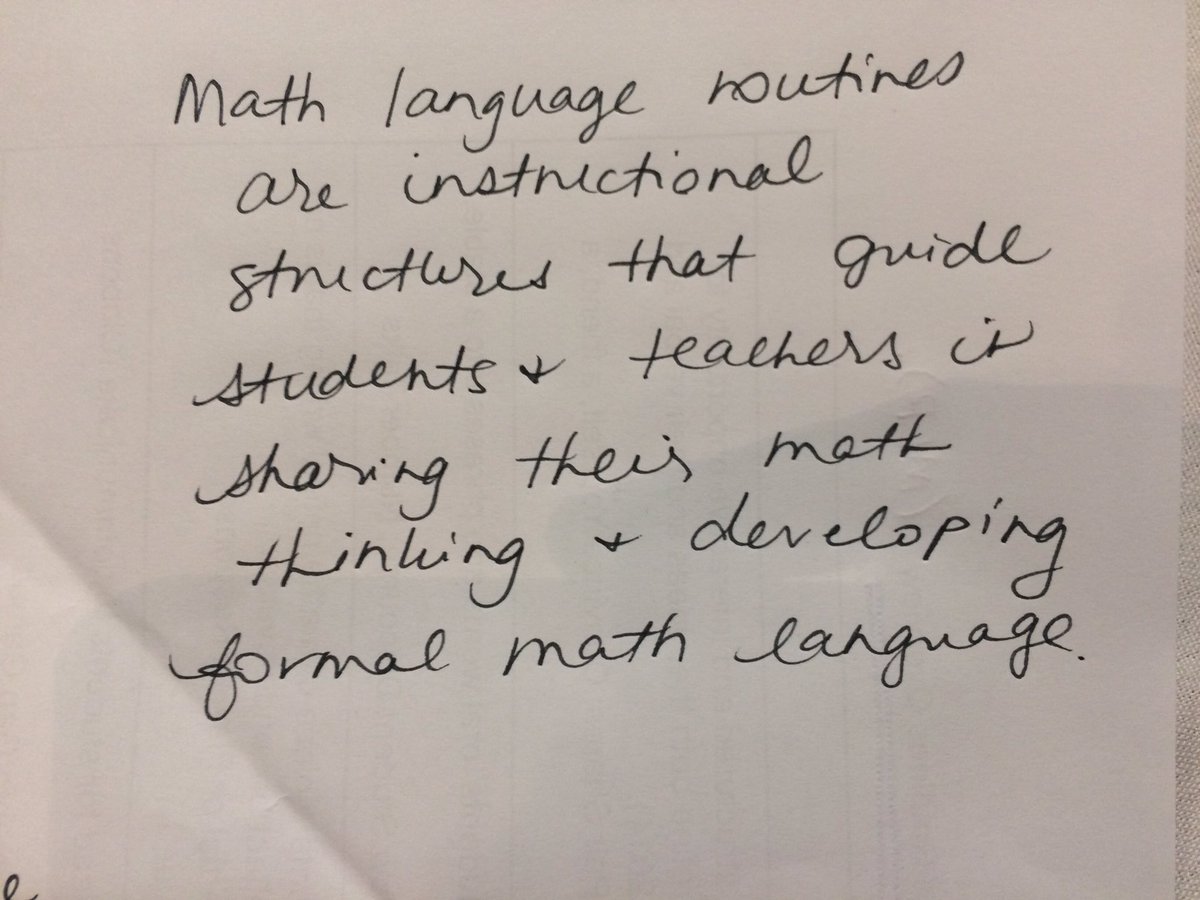 Math language routines
are instructional
structures that guide
students + teachers in
sharing their math
thinking + developing
formal math language.
e